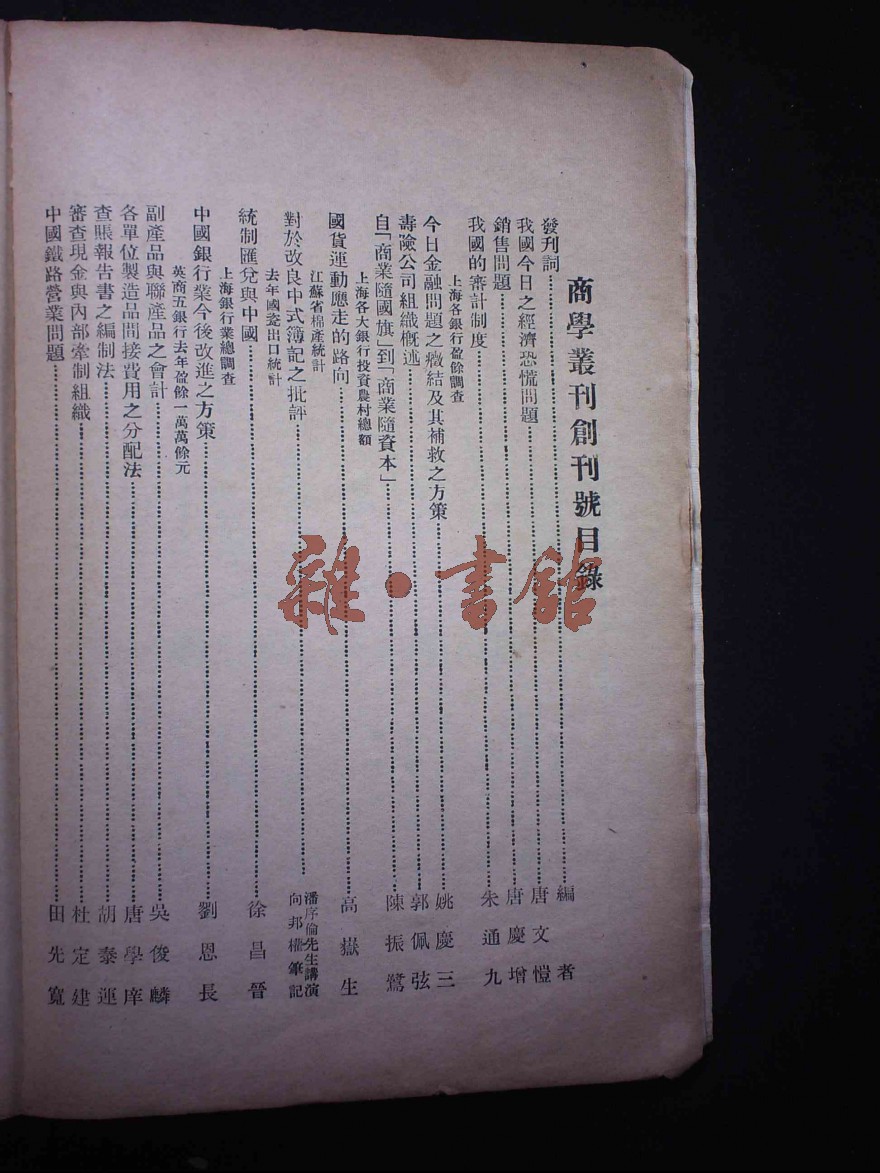 商學叢刊創刊號目錄
發刊詞……編者
我國今日之經濟恐慌問題……唐文愷
銷售問題……唐慶增
我國的審計制度……朱通九
上海各銀行盈餘調查
今日金融問題之癥結及其補救之方策……姚慶三
壽險公司組織概述……郭佩弦
自「商業隨國旗」到「商業隨資本」……陳振鷺
上海各大銀行投資農村總額
國貨運動應走的路向……高嶽生
江蘇省棉產統計
對於改良中式簿記之批評……潘序倫先生講演 向邦權筆記
去年國瓷出口統計
統制匯兌與中國……徐昌晉
上海銀行業總調查
中國銀行業今後改進之方策……劉恩長
英商五銀行去年盈餘一萬萬餘元
副產品與聯產品之會計……吳俊麟
各單位製造品間接費用之分配法……唐學庠
查賬報告書之編制法……胡泰運
審查現金與內部牽制組織……杜定建
中國鐵路營業問題……田先寬
雜·書館